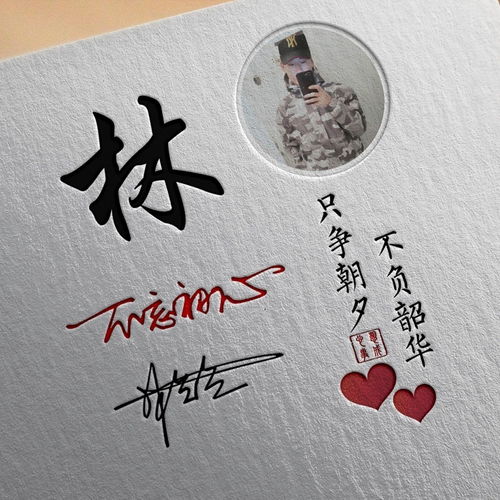 林
不忘初心
只争朝夕
不负韶华